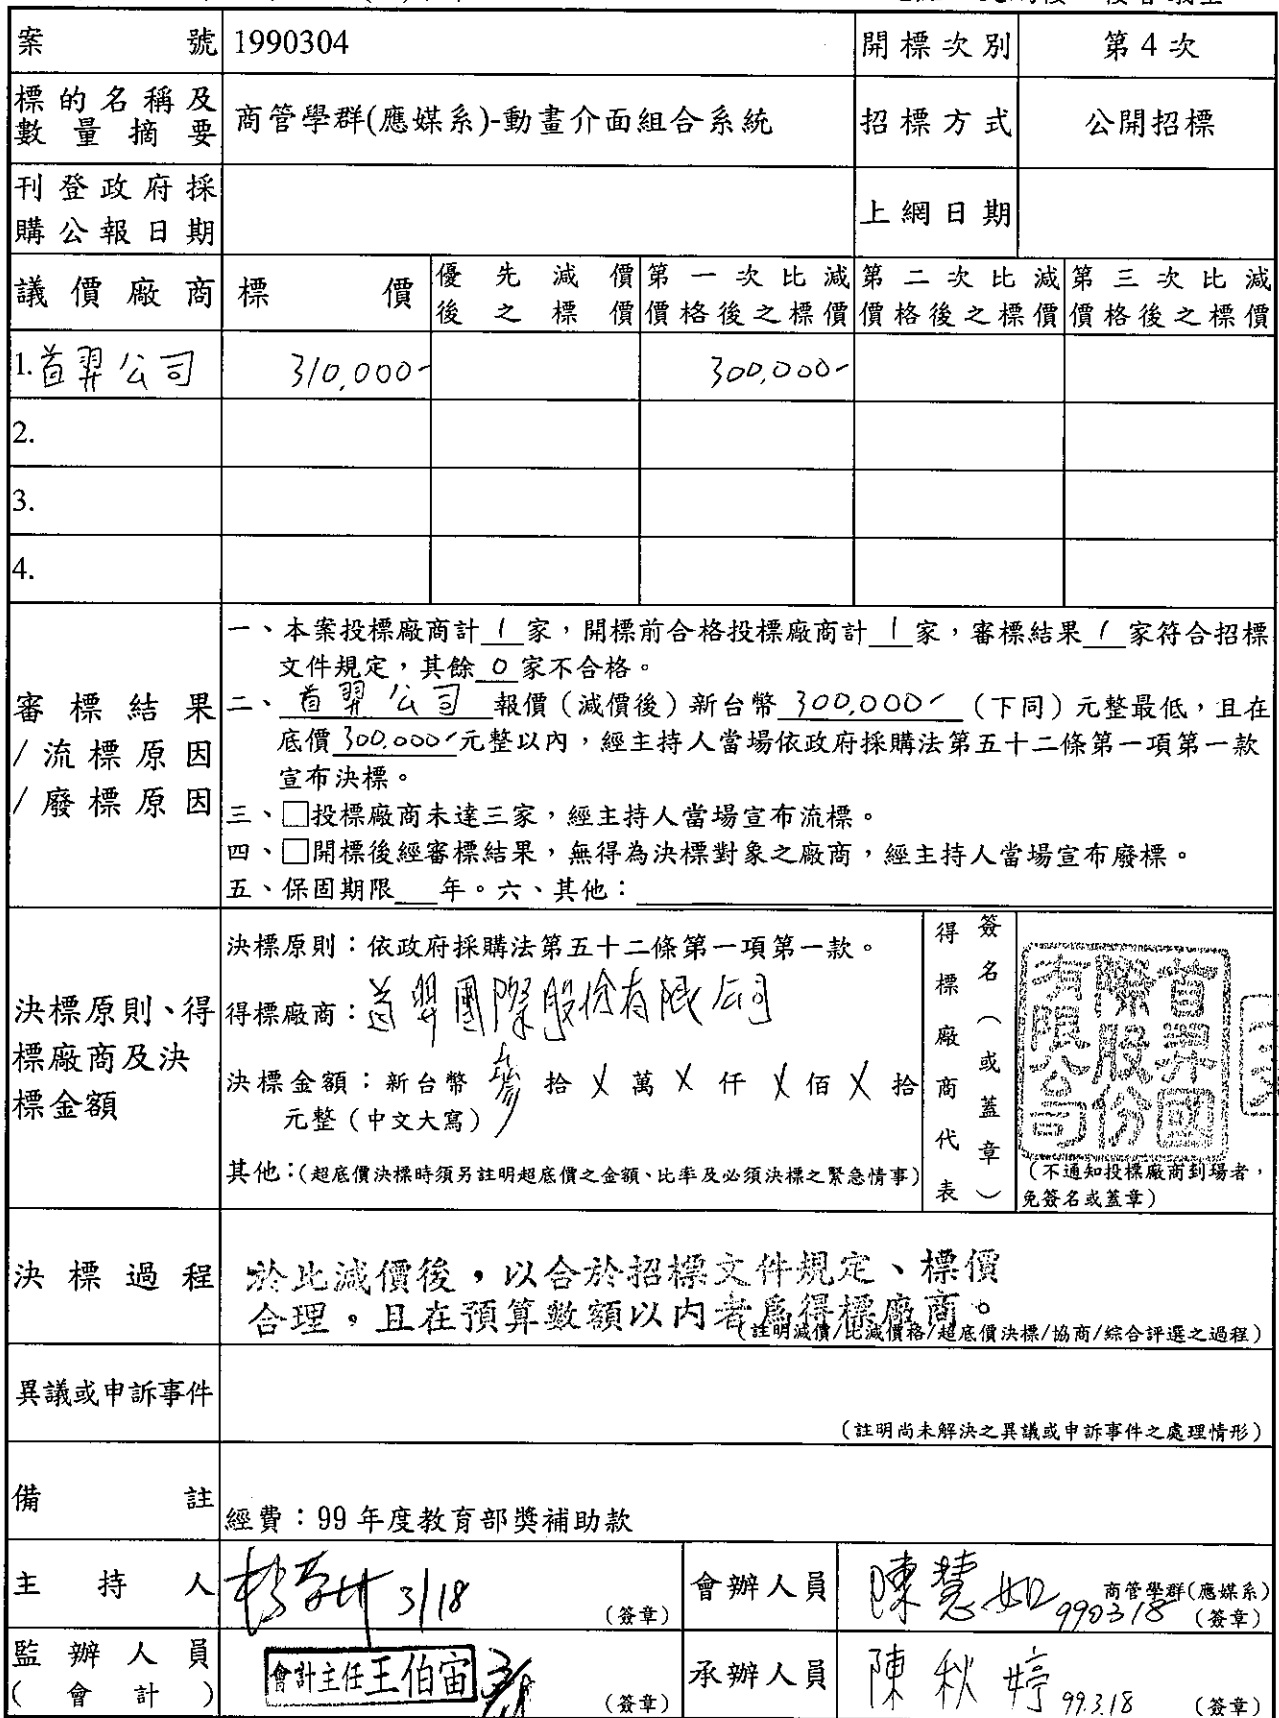 案號 1990304 開標次別 第4次
標的名稱及數量摘要 商管學群(應媒系)-動畫介面組合系統 招標方式 公開招標
刊登政府採購公報日期 上網日期
議價廠商 標價 優先減價後之標價 第一次比減價格後之標價 第二次比減價格後之標價 第三次比減價格後之標價
1.首羿公司 310,000- 300,000-
2.
3.
4.
審標結果/流標原因/廢標原因
一、本案投標廠商計 1 家，開標前合格投標廠商計 1 家，審標結果 1 家符合招標
文件規定，其餘 0 家不合格。
二、首羿公司 報價（減價後）新台幣 300,000- （下同）元整最低，且在
底價 300,000-元整以內，經主持人當場依政府採購法第五十二條第一項第一款
宣布決標。
三、□投標廠商未達三家，經主持人當場宣布流標。
四、□開標後經審標結果，無得為決標對象之廠商，經主持人當場宣布廢標。
五、保固期限___年。六、其他：
決標原則、得標廠商及決標金額
決標原則：依政府採購法第五十二條第一項第一款。
得標廠商：首羿國際股份有限公司
決標金額：新台幣 參 拾 X 萬 X 仟 X 佰 X 拾
元整（中文大寫）
其他：（超底價決標時須另註明超底價之金額、比率及必須決標之緊急情事）
得標廠商代表
簽名（或蓋章）
首羿國際股份有限公司
（不通知投標廠商到場者，
免簽名或蓋章）
決標過程
於比減價後，以合於招標文件規定、標價
合理，且在預算數額以內者為得標廠商。
（註明減價/比減價格/超底價決標/協商/綜合評選之過程）
異議或申訴事件
（註明尚未解決之異議或申訴事件之處理情形）
備註 經費：99 年度教育部獎補助款
主持人 3/18 （簽章） 會辦人員 陳慧如 990318 商管學群(應媒系) （簽章）
監辦人員（會計） 會計主任王伯宙 3/18 （簽章） 承辦人員 陳秋婷 99.3.18 （簽章）